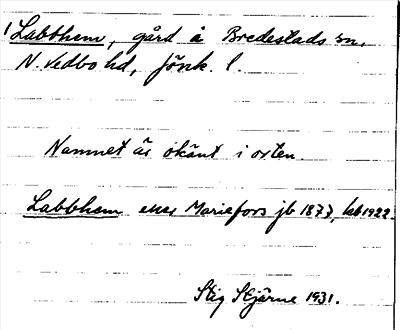 Labbhem, gård å Bredestads sn,
N. Vedbo hd, Jönk. l.
Namnet är okänt i orten.
Labbhem eller Mariefors jb 1877, hb 1922.
Stig Stjärne 1931.